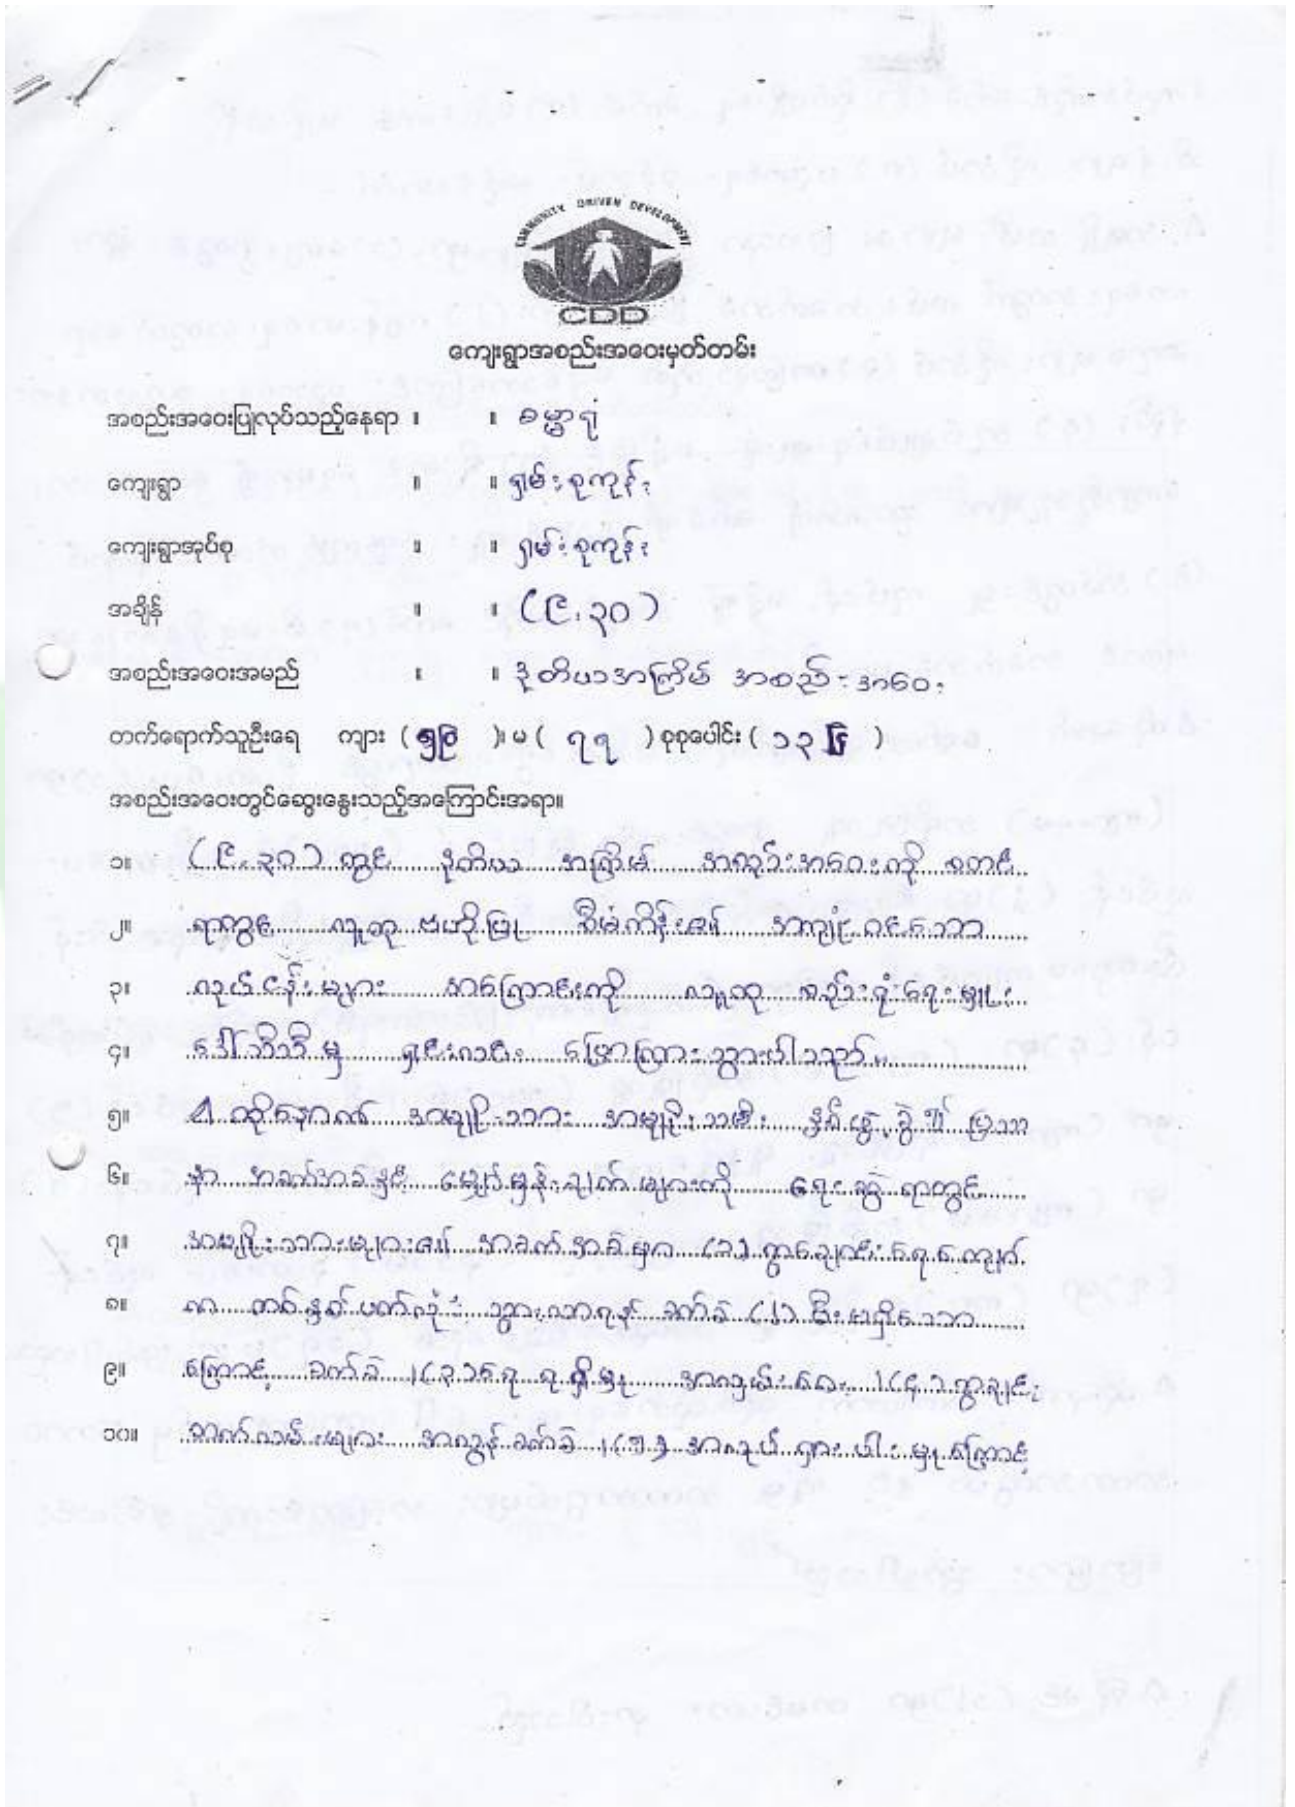 COMMUNITY DRIVEN DEVELOPMENT
CDD
ကျေးရွာအစည်းအဝေးမှတ်တမ်း
အစည်းအဝေးပြုလုပ်သည့်နေရာ ။ ။ ဓမ္မာရုံ
ကျေးရွာ ။ ။ ရှမ်းစုကုန်း
ကျေးရွာအုပ်စု ။ ။ ရှမ်းစုကုန်း
အချိန် ။ ။ (၉.၃၀)
အစည်းအဝေးအမည် ။ ။ ဒုတိယအကြိမ် အစည်းအဝေး
တက်ရောက်သူဦးရေ ကျား ( ၅၉ )၊ မ ( ၇၇ ) စုစုပေါင်း ( ၁၃၆ )
အစည်းအဝေးတွင်ဆွေးနွေးသည့်အကြောင်းအရာ။
၁။ (၉.၃၀) တွင် ဒုတိယ အကြိမ် အစည်းအဝေးကို စတင်
၂။ ရာတွင် လူထု ဗဟိုပြု စီမံကိန်း၏ အကျုံးဝင်သော
၃။ လုပ်ငန်းများ အကြောင်းကို လူထု စည်းရုံးရေးမှူး
၄။ ဒေါ်သီသီမှ ရှင်းလင်း ပြောကြားသွားပါသည်။
၅။ ၎င်းနောက် အမျိုးသား အမျိုးသမီး နှစ်ဖွဲ့ခွဲ၍ ပြဿ
၆။ နာ အခက်အခဲနှင့် မျှော်မှန်းချက်များကို ရေးဆွဲရာတွင်
၇။ အမျိုးသားများ၏ အခက်အခဲမှာ (၁) ရွာချောင်းရေကျော်
၈။ လာ သွားလာရန် ခက်ခဲ (၂) မီးမရှိသော
၉။ ကြောင့် ခက်ခဲ၊ (၃) ရေ ရရှိမှု အလှမ်းဝေး၊ (၄) ရွာချင်း
၁၀။ ဆက်လမ်းများ အလွန်ခက်ခဲ၊ (၅) အလုပ် ရှားပါးမှုကြောင့်